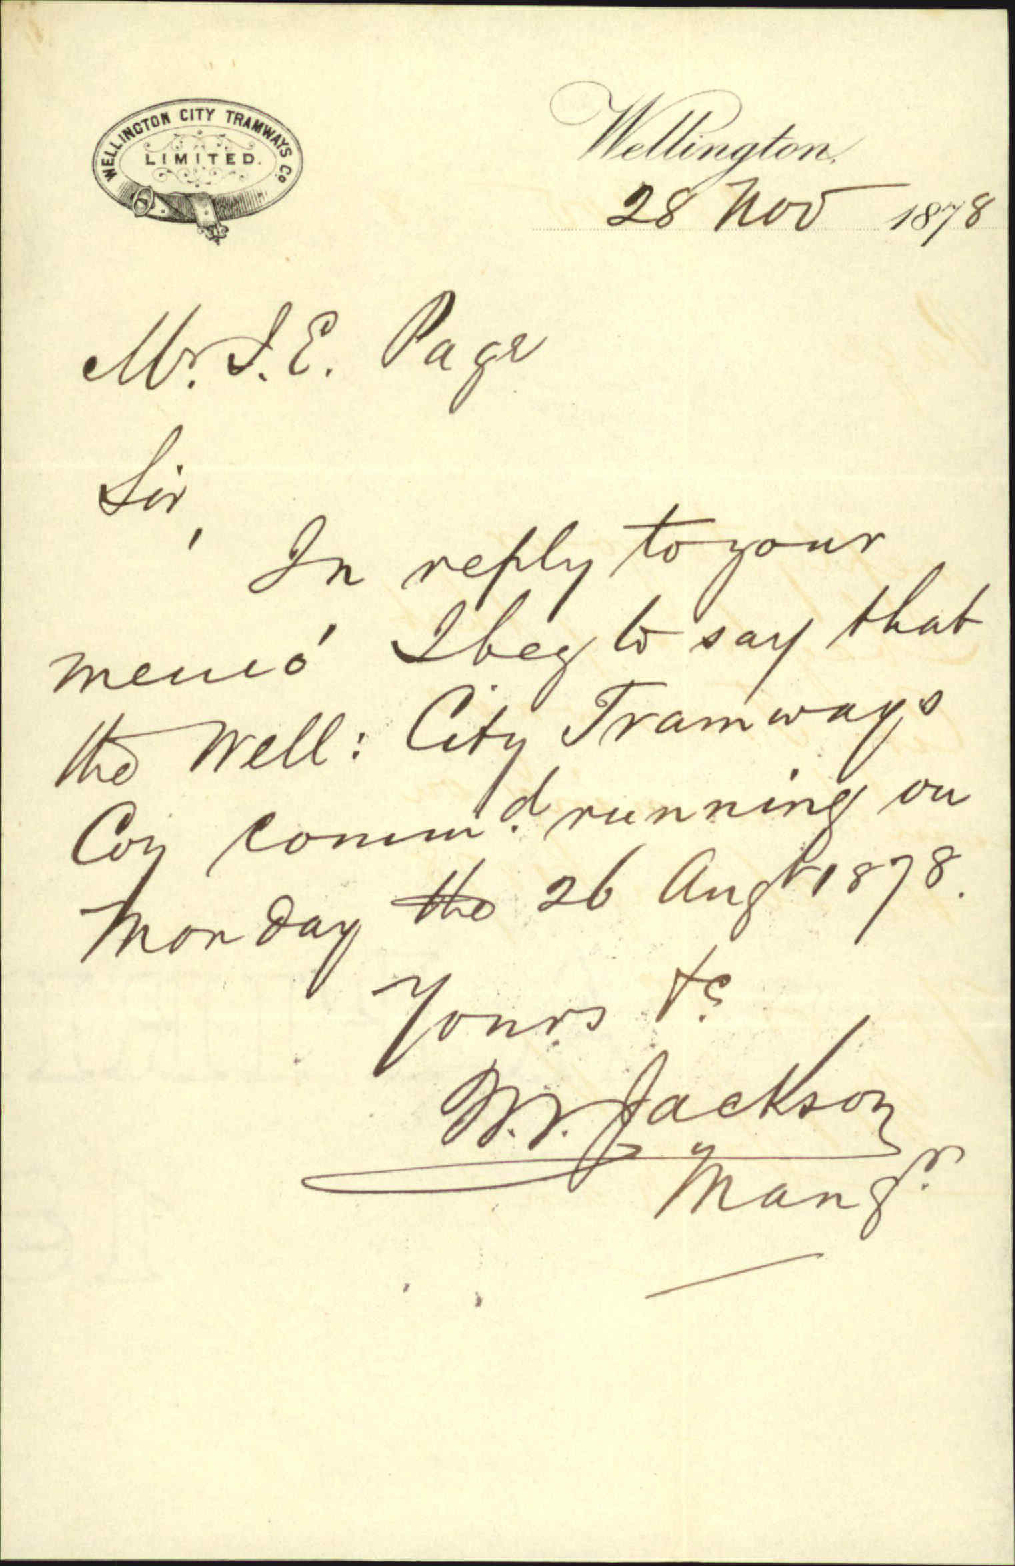 WELLINGTON CITY TRAMWAYS Co
LIMITED.
Wellington,
28 Nov 1878
Mr. J. E. Page
Sir,
In reply to your
memo' I beg to say that
the Well: City Tramways
Coy commd. running on
Monday the 26 Augt 1878.
Yours &c.
W. V. Jackson
Mangr.